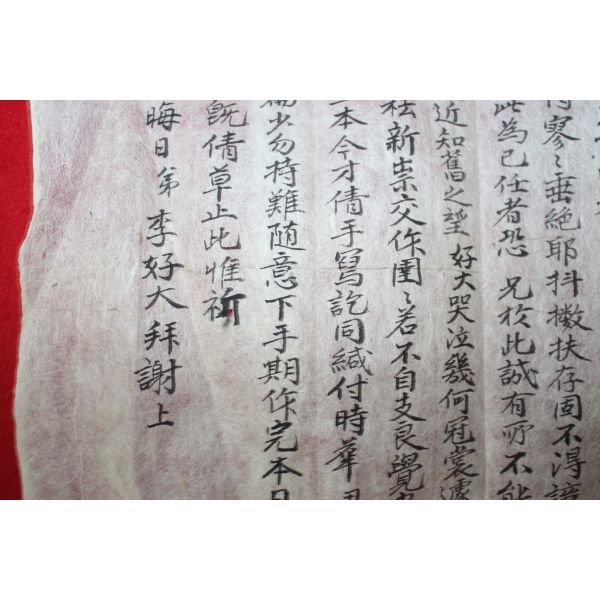 寥〻垂絶耶抖擻扶存固不得諉
此為己任者恐 兄於此誠有所不能
近知舊之望 好大哭泣幾何冠裳遽
新祟交作圉〻若不自支良覺
本今才倩手寫訖同緘付時華
少勿持難随意下手期作完本日
既倩草止此惟祈
晦日弟 李好大 拜謝上